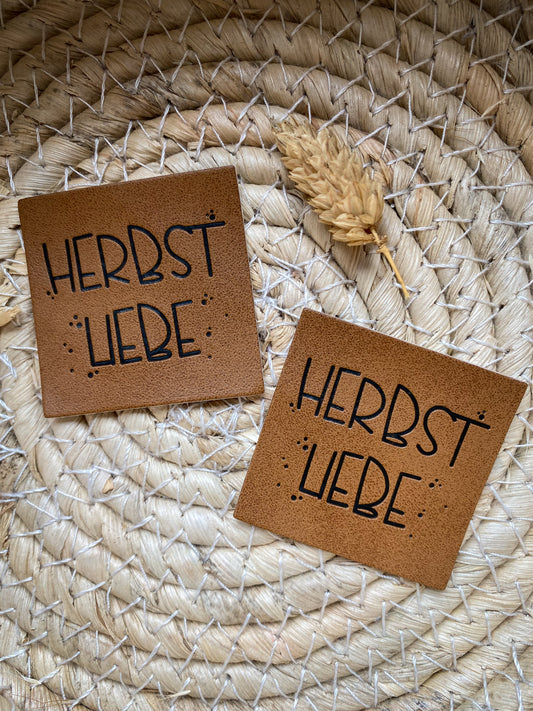 HERBST
LIEBE
HERBST
LIEBE